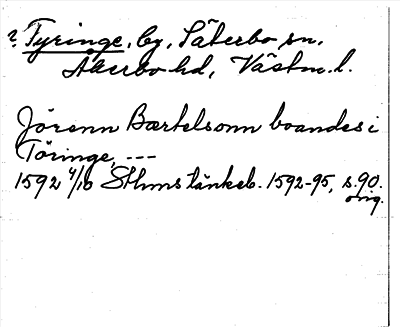 ? Tyringe, by, Säterbo sn,
Åkerbo hd, Västm. l.
Jörenn Bærtelsonn boandes i
Töringe, ---
1592 4/10 Sthms tänkeb. 1592-95, s. 90.
orig.